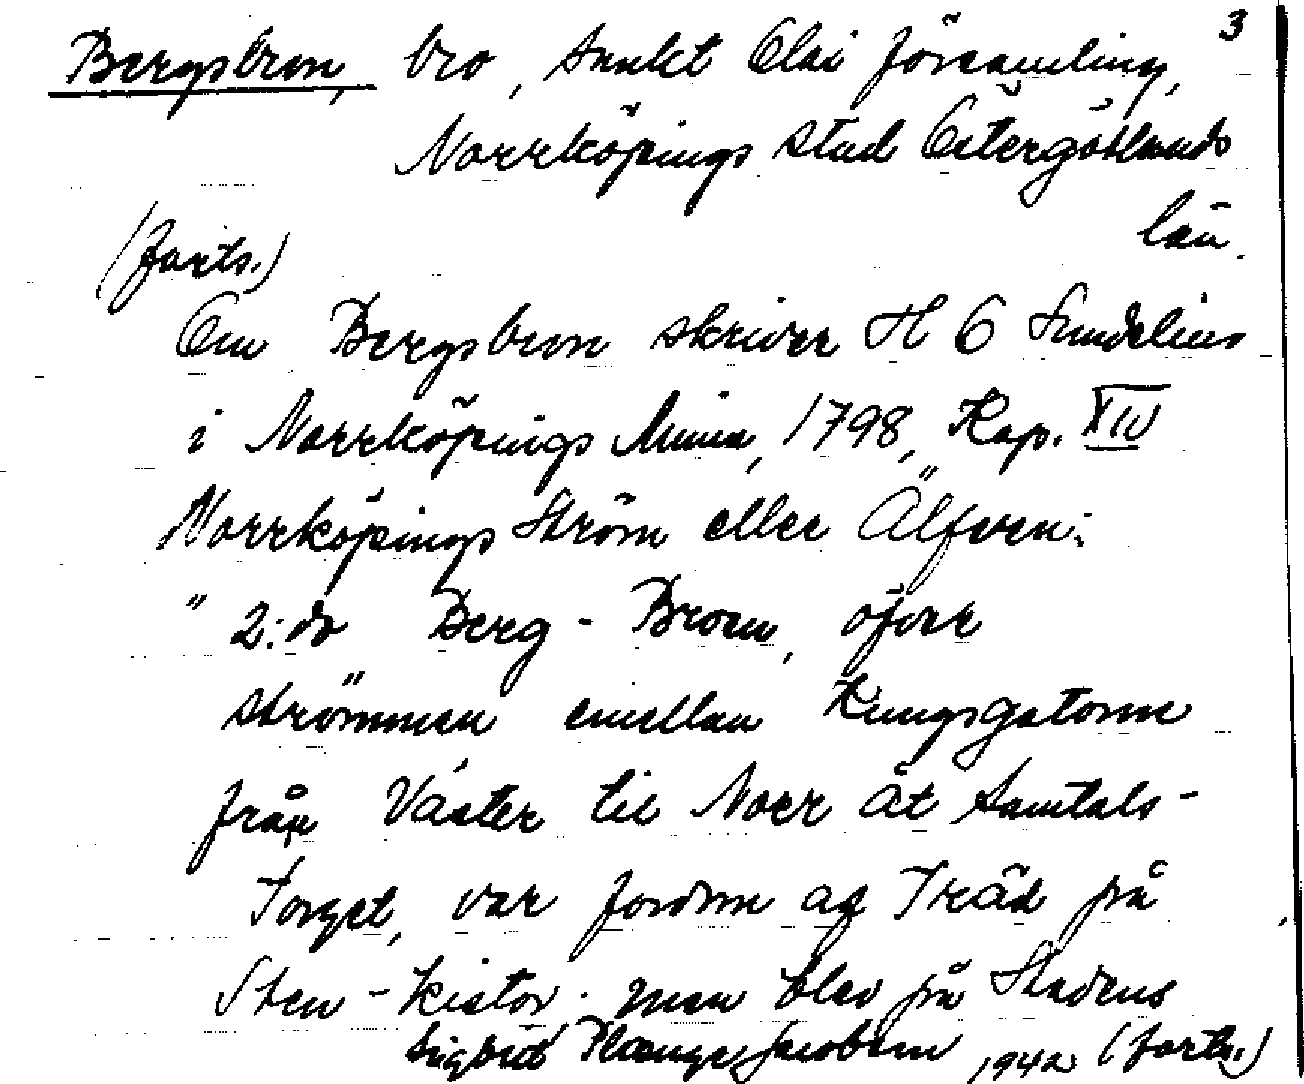 3
Bergsbron, bro, Sankt Olai församling,
Norrköpings stad Östergötlands
län.
(forts.)
Om Bergsbron skriver H O Sundelius
i Norrköpings Minne, 1798, Kap. XIV
Norrköpings Ström eller Älfven:
" 2:do Berg-Bron, öfver
strömmen emellan Kungsgatorne
från Väster til Norr åt Samtals-
Torget, var fordom af Träd på
Sten-kistor. men blev på Stadens
Sigrid Plænge Jacobson 1942 (forts.)